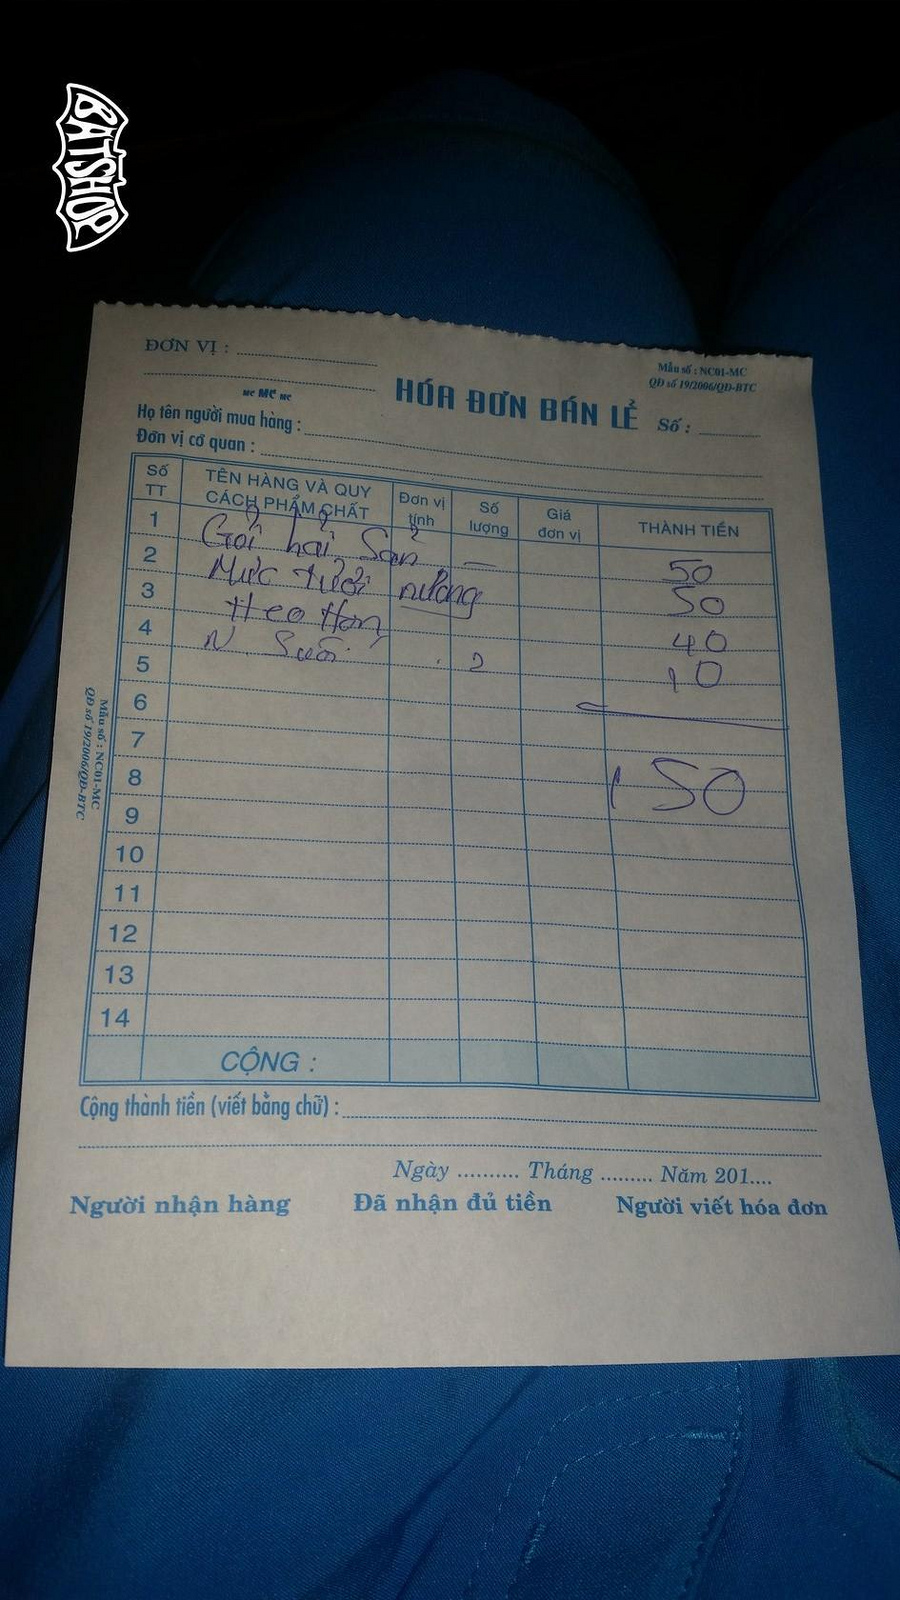 BATSHOP
ĐƠN VỊ :
MC MC MC
HÓA ĐƠN BÁN LẺ
Mẫu số : NC01-MC
QĐ số 19/2006/QĐ-BTC
Số :
Họ tên người mua hàng :
Đơn vị cơ quan :
Số TT TÊN HÀNG VÀ QUY CÁCH PHẨM CHẤT Đơn vị tính Số lượng Giá đơn vị THÀNH TIỀN
1 Gỏi hải Sản 50
2 Mực tươi nướng 50
3 Heo 40
4 N. Suối 2 10
5
6
7
8 150
9
10
11
12
13
14
CỘNG :
Mẫu số : NC01-MC
QĐ số 19/2006/QĐ-BTC
Cộng thành tiền (viết bằng chữ) :
Ngày .......... Tháng ......... Năm 201....
Người nhận hàng Đã nhận đủ tiền Người viết hóa đơn